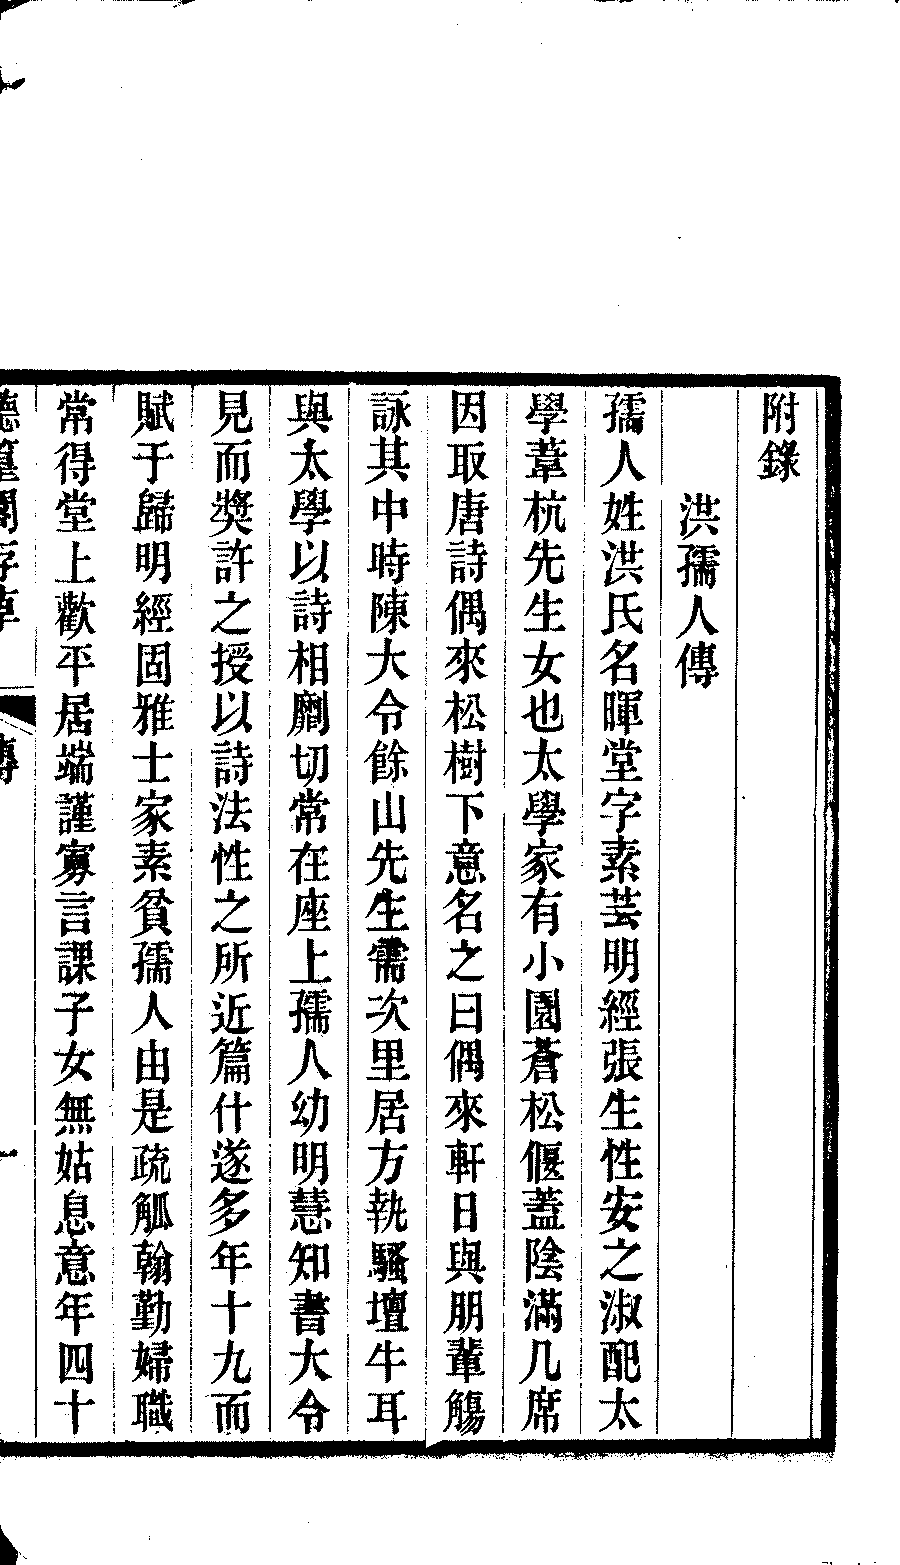 附錄
洪孺人傳
孺人姓洪氏名暉堂字素芸明經張生性安之淑配太
學葦杭先生女也太學家有小園蒼松偃蓋陰滿几席
因取唐詩偶來松樹下意名之曰偶來軒日與朋輩觴
詠其中時陳大令餘山先生需次里居方執騷壇牛耳
與太學以詩相劘切常在座上孺人幼明慧知書大令
見而奬許之授以詩法性之所近篇什遂多年十九而
賦于歸明經固雅士家素貧孺人由是疏觚翰勤婦職
常得堂上歡平居端謹寡言課子女無姑息意年四十
傳
一